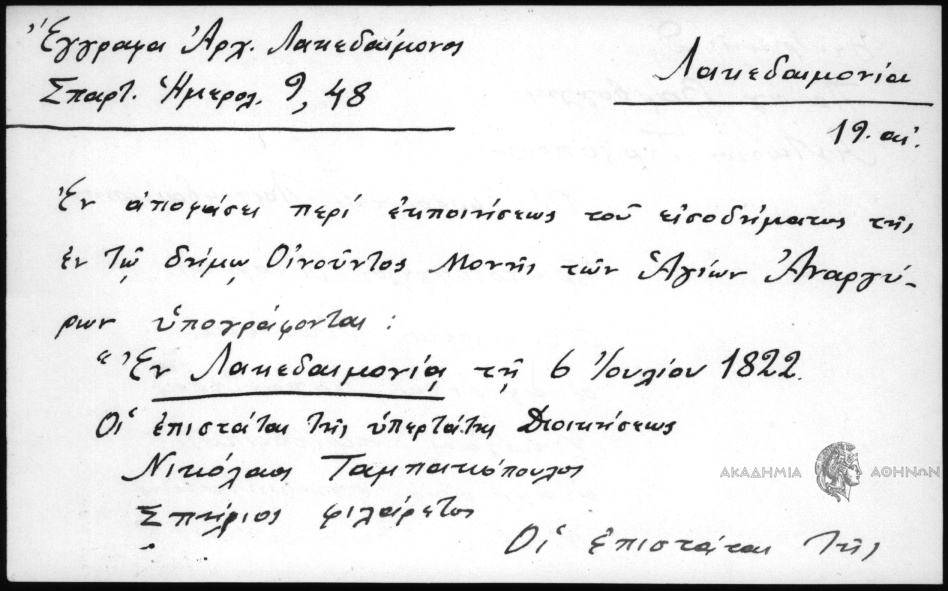 Ἔγγραφα Ἀρχ. Λακεδαίμονος
Σπαρτ. Ἡμερολ. 9, 48
Λακεδαιμονία
19. αἰ.
Ἐν ἀποφάσει περί ἐκποιήσεως τοῦ εἰσοδήματος τῆς
ἐν τῷ δήμῳ Οἰνοῦντος Μονῆς τῶν Ἁγίων Ἀναργύ-
ρων ὑπογράφονται:
"Ἐν Λακεδαιμονίᾳ τῇ 6 Ἰουλίου 1822.
Οἱ ἐπιστάται τῆς ὑπερτάτης Διοικήσεως
Νικόλαος Ταμπακόπουλος
Σπήριος φιλαίρετος
Οἱ ἐπιστάται τῆς
ΑΚΑΔΗΜΙΑ ΑΘΗΝΩΝ